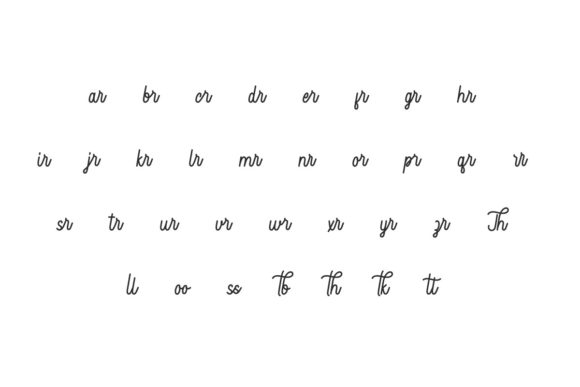 ar br cr dr er fr gr hr
ir jr kr lr mr nr or pr qr rr
sr tr ur vr wr xr yr zr Th
ll oo ss tb th tk tt